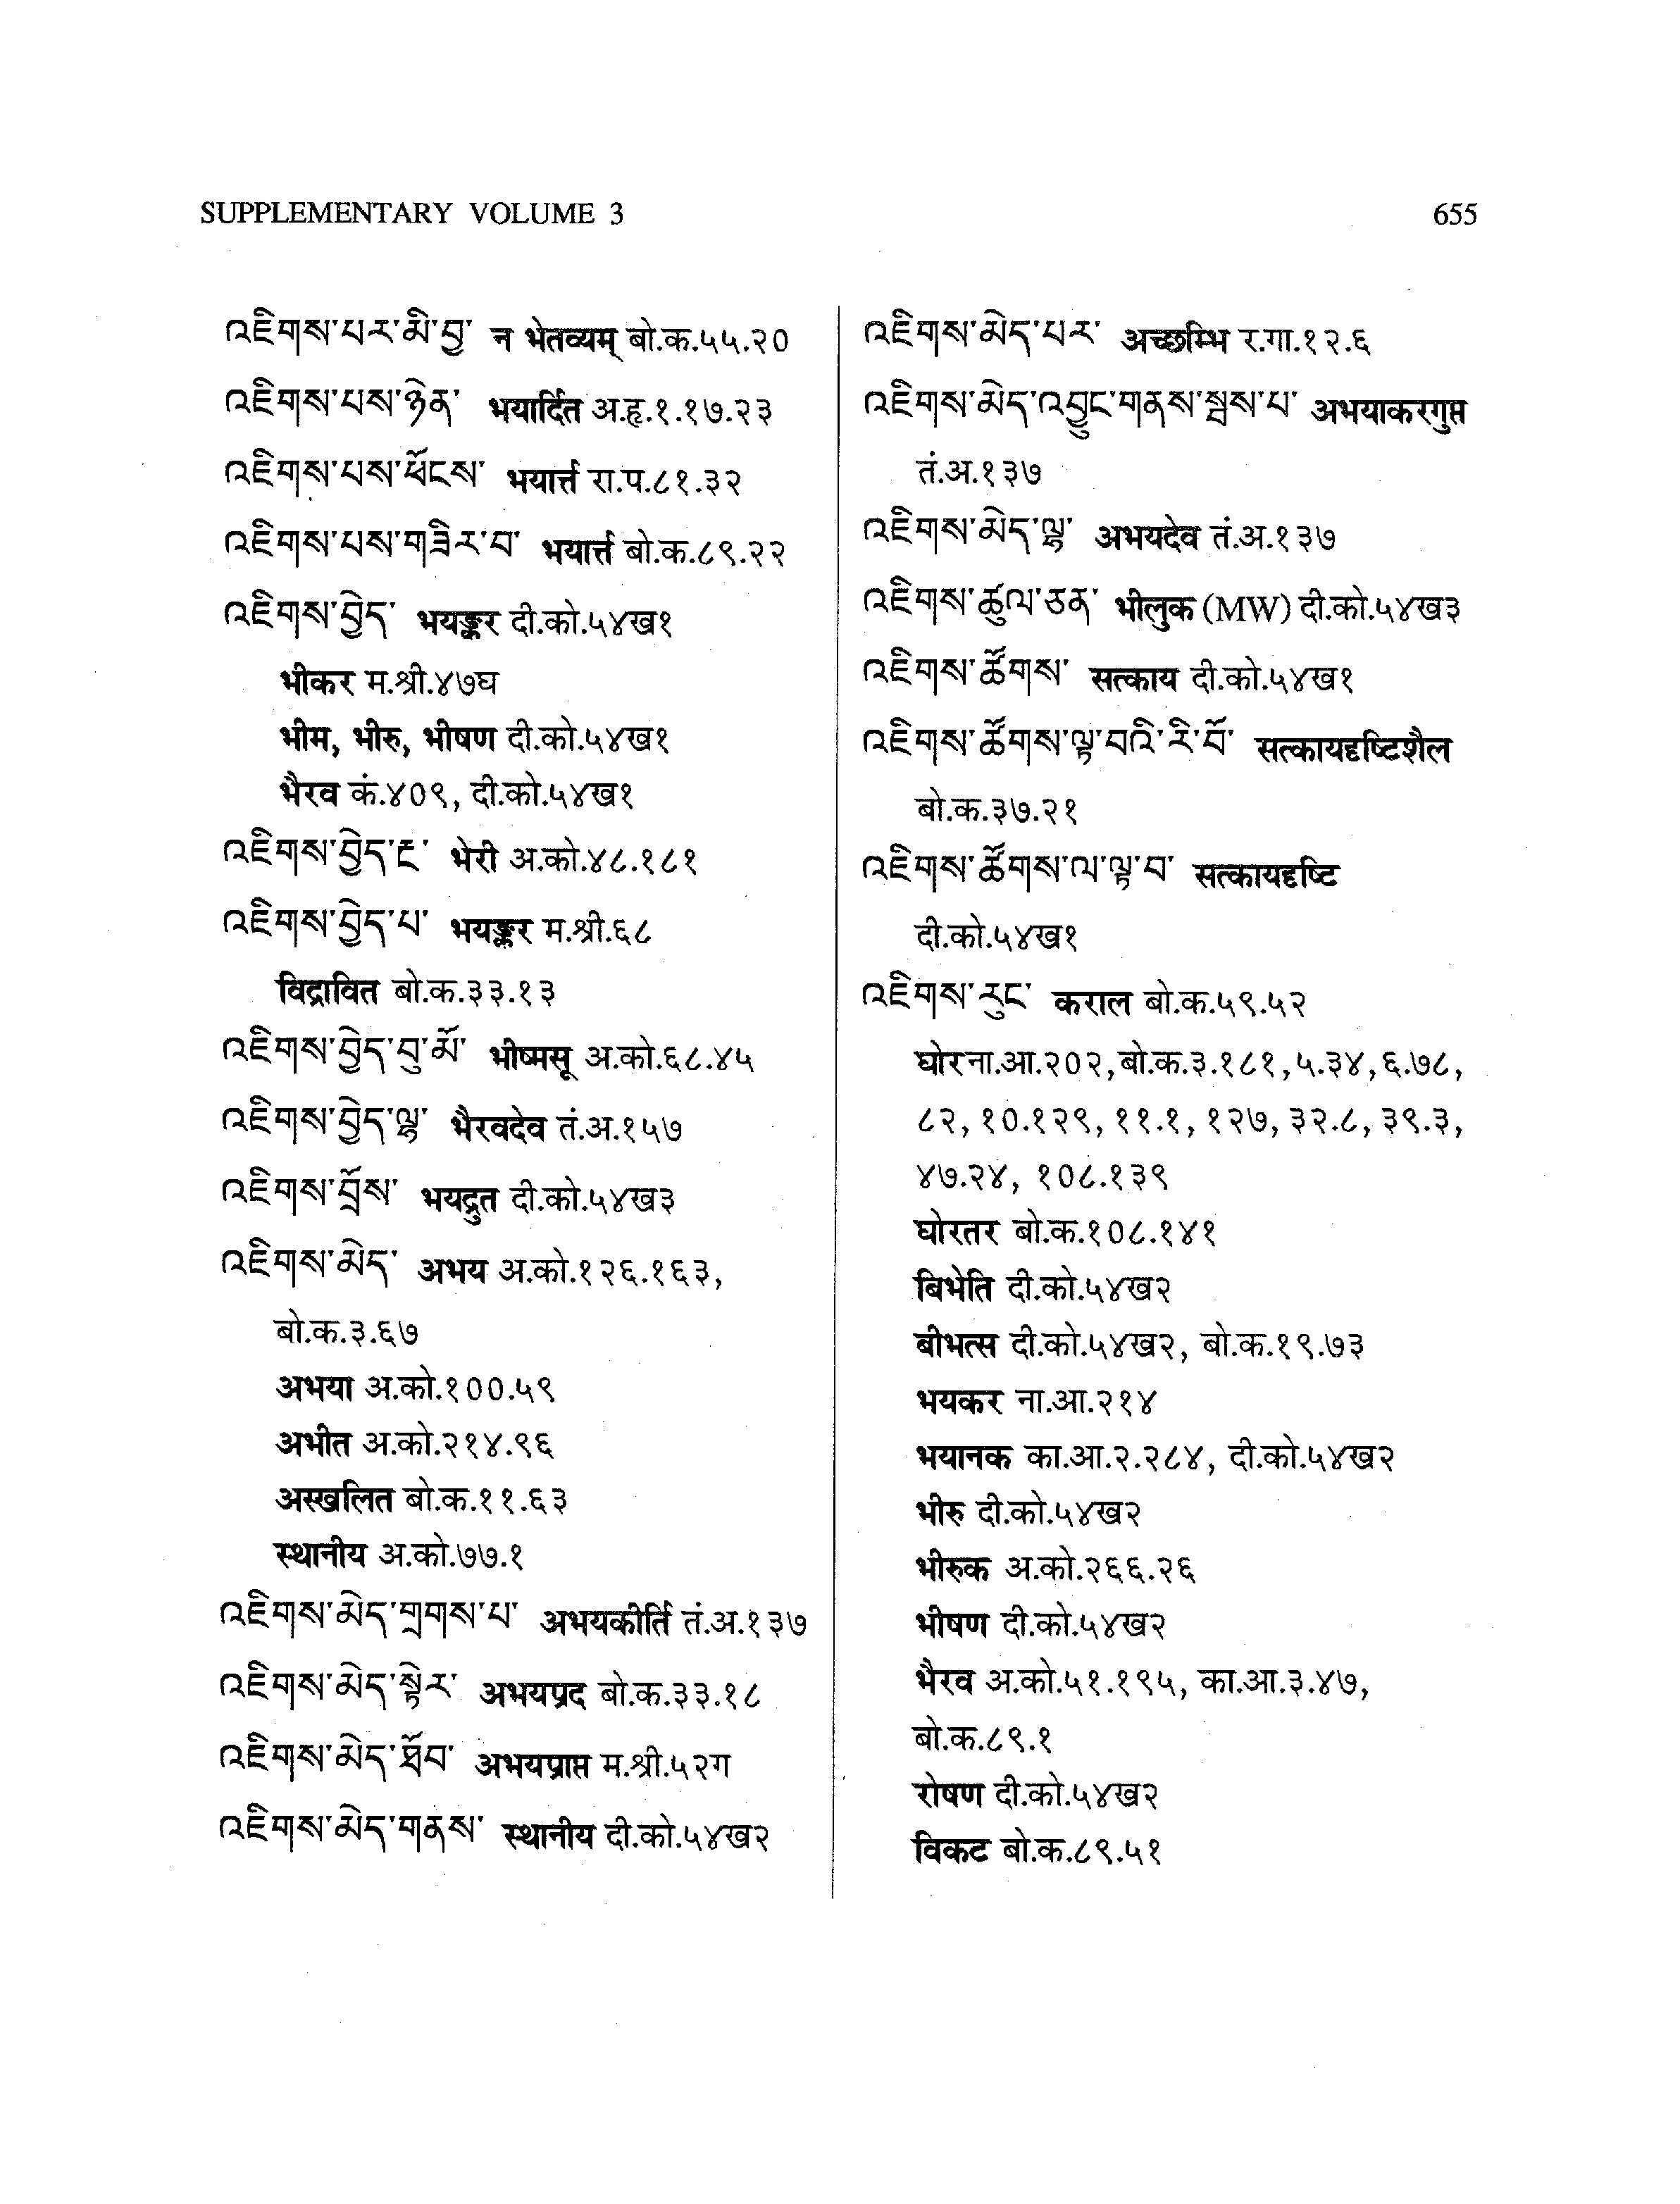 SUPPLEMENTARY VOLUME 3
655
འཇིགས་པར་མི་བྱ་ न भेतव्यम् बो.क.५५.२०
འཇིགས་པས་ཉེན་ भयार्दित अ.हृ.१.१७.२३
འཇིགས་པས་ཕོངས་ भयार्त्त रा.प.८१.३२
འཇིགས་པས་གཟིར་བ་ भयार्त्त बो.क.८९.२२
འཇིགས་བྱེད་ भयङ्कर दी.को.५४ख१
भीकर म.श्री.४७घ
भीम, भीरु, भीषण दी.को.५४ख१
भैरव कं.४०९, दी.को.५४ख१
འཇིགས་བྱེད་རྔ་ भेरी अ.को.४८.१८१
འཇིགས་བྱེད་པ་ भयङ्कर म.श्री.६८
विद्रावित बो.क.३३.१३
འཇིགས་བྱེད་བུ་མོ་ भीष्मसू अ.को.६८.४५
འཇིགས་བྱེད་ལྷ་ भैरवदेव तं.अ.१५७
འཇིགས་བྲོས་ भयद्रुत दी.को.५४ख३
འཇིགས་མེད་ अभय अ.को.१२६.१६३,
बो.क.३.६७
अभया अ.को.१००.५९
अभीत अ.को.२१४.९६
अस्खलित बो.क.११.६३
स्थानीय अ.को.७७.१
འཇིགས་མེད་གྲགས་པ་ अभयकीर्ति तं.अ.१३७
འཇིགས་མེད་སྟེར་ अभयप्रद बो.क.३३.१८
འཇིགས་མེད་ཐོབ་ अभयप्राप्त म.श्री.५२ग
འཇིགས་མེད་གནས་ स्थानीय दी.को.५४ख२
འཇིགས་མེད་པར་ अच्छम्भि र.गा.१२.६
འཇིགས་མེད་འབྱུང་གནས་སྦས་པ་ अभयाकरगुप्त
तं.अ.१३७
འཇིགས་མེད་ལྷ་ अभयदेव तं.अ.१३७
འཇིགས་ཚུལ་ཅན་ भीलुक (MW) दी.को.५४ख३
འཇིགས་ཚོགས་ सत्काय दी.को.५४ख१
འཇིགས་ཚོགས་ལྟ་བའི་རི་བོ་ सत्कायदृष्टिशैल
बो.क.३७.२१
འཇིགས་ཚོགས་ལ་ལྟ་བ་ सत्कायदृष्टि
दी.को.५४ख१
འཇིགས་རུང་ कराल बो.क.५९.५२
घोर ना.आ.२०२, बो.क.३.१८१, ५.३४, ६.७८,
८२, १०.१२९, ११.१, १२७, ३२.८, ३९.३,
४७.२४, १०८.१३९
घोरतर बो.क.१०८.१४१
बिभेति दी.को.५४ख२
बीभत्स दी.को.५४ख२, बो.क.१९.७३
भयकर ना.आ.२१४
भयानक का.आ.२.२८४, दी.को.५४ख२
भीरु दी.को.५४ख२
भीरुक अ.को.२६६.२६
भीषण दी.को.५४ख२
भैरव अ.को.५१.१९५, का.आ.३.४७,
बो.क.८९.१
रोषण दी.को.५४ख२
विकट बो.क.८९.५१